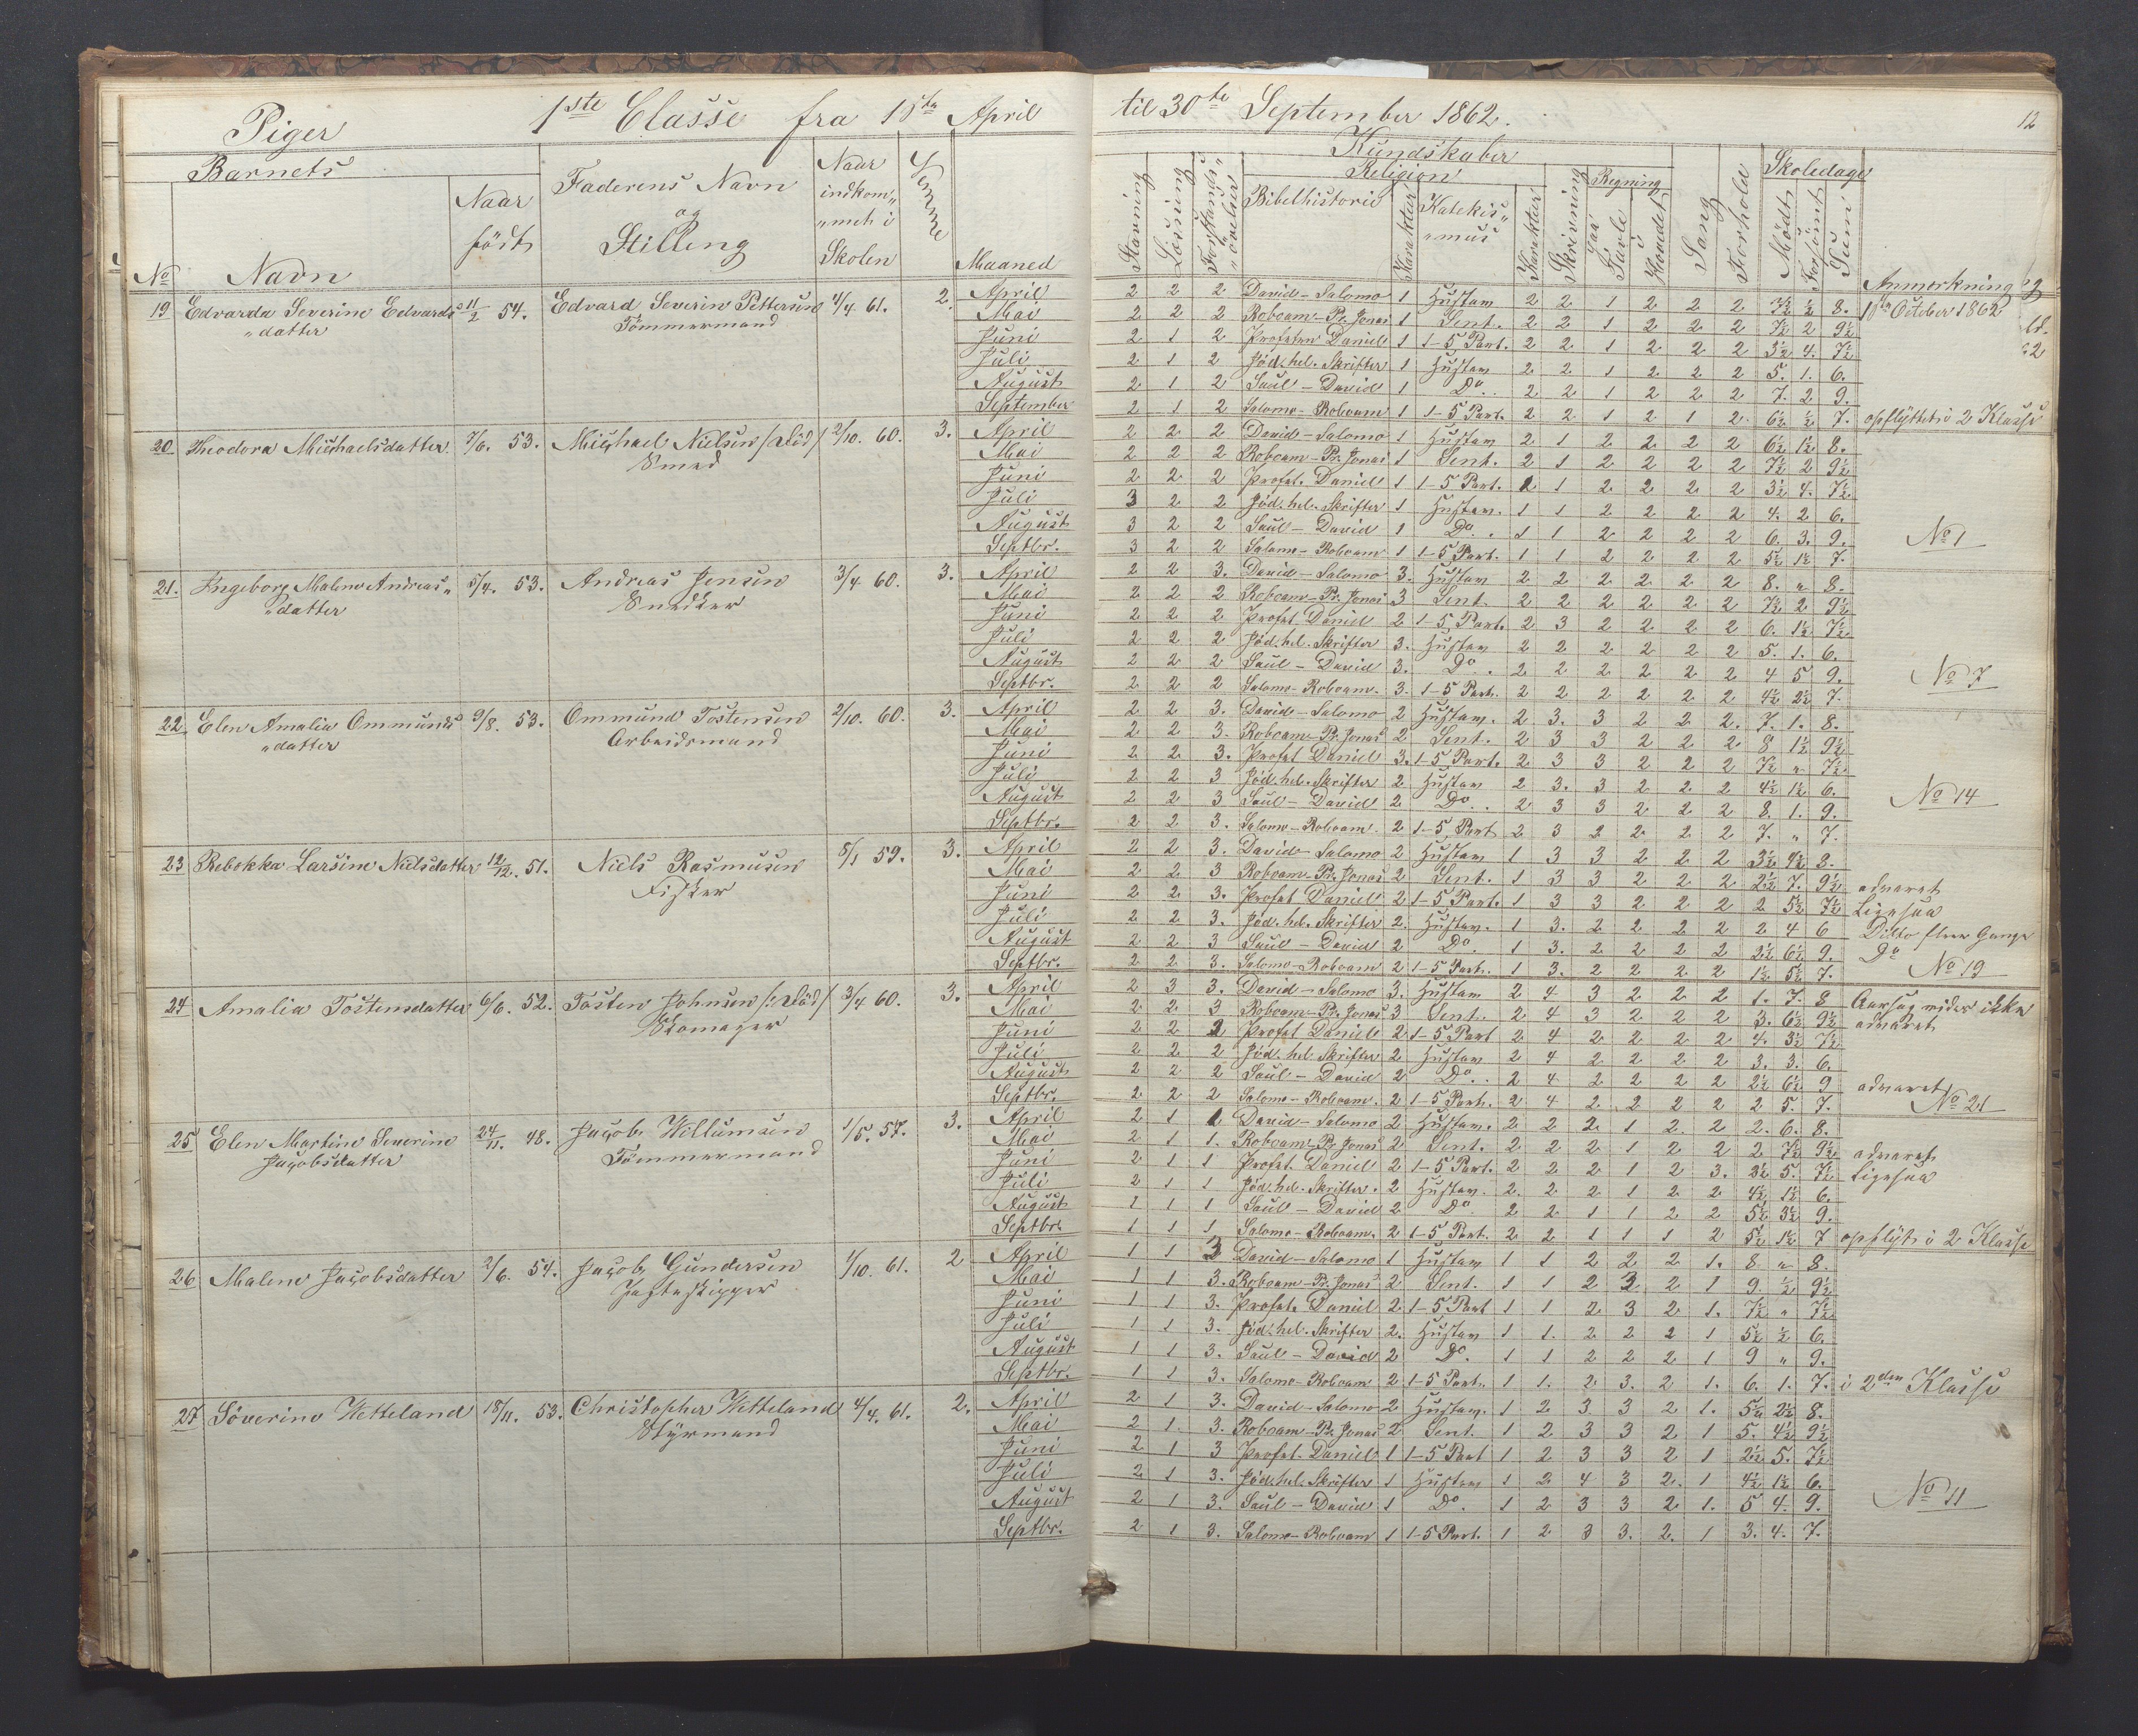 Piger 1ste Classe fra 1ste April til 30te September 1862. 12
Barnets
No
Navn
Naar født
Faderens Navn og Stilling
Naar indkom„ „met i Skolen
Evne
Maaned
Kundskaber
Religion
Stavning
Læsning
Forstands„ „øvelser
Bibelhistorie
Karakter
Katekis„ „mus
Karakter
Skrivning
Regning
paa Tavle
i Hovedet
Sang
Forhold
Skoledage
Mødt
Forsømt
Sum
Anmærkning
19 Edvarda Severine Edvards 11/2 54. Edvard Severin Pettersen 4/4 61. 2. April 2 2 2 David – Salomo 1 2 2 1 2 2 2 7½ ½ 8. 1ste October 1862
„datter Tømmermand Mai 2 2 2 Roboam – Pr. Jonas 1 Sent. 2 2 1 2 2 2 7½ 2 9½
Juni 2 1 2 Profeten Daniel 1 1-5 Part. 2 2 1 2 2 2 3½ 4. 7½
Juli 2 1 2 Jød. hel. Skrifter 1 2 2 1 2 2 2 5. 1. 6.
August 2 1 2 Saul – David 1 Do. 2 2 1 2 2 2 7. 2 9.
September 2 1 2 Salomo – Roboam 1 1-5 Part. 2 2 1 2 1 2. 6½ ½ 7. opflyttet i 2 Klasse
20 Theodora Michaelsdatter 7/6. 53. Michael Nielsen /: død / 2/10. 60. 3. April 2 2 2 David – Salomo 1 2 1 2 2 2 2 6½ 1½ 8.
Smed Mai 2 2 2 Roboam – Pr. Jonas 1 Sent. 2 1 2 2 2 2 7½ 2 9½
Juni 2 2 2 Profet. Daniel 1 1-5 Part. 2 1 2 2 2 2 3½ 4. 7½
Juli 3 2 2 Jød. hel. Skrifter 1 1 1 2 2 2 2 4. 2 6.
August 3 2 2 Saul – David 1 Do. 1 1 2 2 2 2 6. 3. 9. No 1
Septbr. 3 2 2 Salomo – Roboam 1 1-5 Part. 1 1 2 2 2 2 5½ 1½ 7.
21. Ingeborg Malene Andreas„ 5/4. 53. Andreas Jensen 3/4 60. 3. April 2 2 3. David – Salomo 3. 2 2 2 2 2 2 8. „ 8.
„datter Snedker Mai 2 2 2 Roboam – Pr. Jonas 3 Sent. 2 2 2 2 2 2 7½ 2 9½
Juni 2 2 2 Profet Daniel 2 1-5 Part. 2 3 2 2 2 2 6. 1½ 7½
Juli 2 2 2 Jød. hel. Skrifter 3. 2 2 2 2 2 2 5. 1. 6.
August 2 2 2 Saul – David 3. Do. 2 2 2 2 2 2 4 5 9. No 7
Septbr. 2 2 2 Salomo – Roboam. 3. 1-5 Part. 2 2 2 2 2 2 4½ 2½ 7.
22. Elen Amalia Ommunds 9/8. 53. Ommund Tostensen 2/10. 60. 3. April 2 2 3. David – Salomo 2 2 3. 3 2 2 2. 7. 1. 8.
„datter Arbeidsmand Mai 2 2 3. Roboam – Pr. Jonas 2 Sent. 2 3 3 2 2 2 8 1½ 9½
Juni 2 2 3. Profet Daniel 3. 1-5 Part. 2 3 3 2 2 2 7½ „ 7½
Juli 2 2 3 Jød. hel. Skrifter 2 2 3. 3 2 2 2 4½ 1½ 6.
August 2 2 3 Saul – David 2 Do. 2 3 3 2 2 2 8. 1. 9. No 14
Septbr. 2 2 3. Salomo – Roboam. 2 1-5 Part 2 3 2 2 2 2 7. „ 7.
23 Rebekka Larsine Nielsdatter 12/12. 51. Niels Rasmusen 5/1 59. 3. April 2 2 3. David – Salomo 2 1 3 3 2 2 2 3½ 4½ 8.
Fisker Mai 2 2 3 Roboam – Pr. Jonas 2 Sent. 1 3 3 2 2 2 2½ 7. 9½ advaret
Juni 2 2 3. Profet Daniel 2 1-5 Part. 1 3 3 2 2 2 2 5½ 7½ Ligesaa
Juli 2 2 3. Jød. hel. Skrifter 2. 1 3. 2 2 2 2 2 4 6 Ditto flere Gange
August 2 2 3 Saul – David 2 Do. 1 3. 2 2 2 2 2½ 6½ 9. Do
Septbr. 2 2 3. Salomo – Roboam 2 1-5 Part. 1 3. 2 2 2 2 1½ 5½ 7. No 19
24 Amalia Tostensdatter 6/6. 52. Tosten Johnsen /: død / 3/4 60. 3. April 2 3 3. David – Salomo 3. 2 4 3 2 2 2 1. 7. 8 ikke
Skomager Mai 2 2 3 Roboam – Pr. Jonas 3 Sent. 2 4 3 2 2 2 3. 6½ 9½ advaret
Juni 2 2 2 Profet Daniel 2 1-5 Part 2 4 2 2 2 2 4. 3½ 7½
Juli 2 2 2 Jød. hel. Skrifter 2 2 4 2 2 2 2 3. 3. 6.
August 2 2 2 Saul – David 2 Do. 2 4 2 2 2 2 2½ 6½ 9 advaret
Septbr. 2 2 2 Salomo – Roboam. 2 1-5 Part. 2 4 2 2 2 2 2 5. 7. No 21
25 Elen Martine Severine 24/11. 48. Jacob Willumsen 1/5. 57. 3. April 2 1 1 David – Salomo 2 2 2 2 1 2 2 2. 6. 8.
Jacobsdatter Tømmermand Mai 2 1 1. Roboam – Pr. Jonas 2 Sent. 2 2 2 1 2 2 2 7½ 9½ advaret
Juni 2 1 1 Profet. Daniel 2 1-5 Part. 2 2 2 1 2 3. 2½ 5. 7½ Ligesaa
Juli 2 1 1 Jød. hel. Skrifter. 2 2. 2 2 1 2 2 4½ 1½ 6.
August 1 1 1 Saul – David 2 Do. 2 2 1 1 2 2 5½ 3½ 9.
Septbr. 1 1 1 Salomo – Roboam. 2 1-5 Part. 2 2 1 1 1 2 5½ 1½ 7 opflyt i 2 Klasse
26 Malene Jacobsdatter 2/6. 54. Jacob Gundersen 1/10. 61. 2 April 1 1 3 David – Salomo 1 1 1 2 2 2 1. 8 „ 8.
Jagteskipper Mai 1 1 3. Roboam – Pr. Jonas 2 Sent. 1 1 2 3 2 1 9. ½ 9½
Juni 1 1 3. Profet. Daniel 2. 1-5 Part 1 1 2 3 2 1. 7½ „ 7½
Juli 1 1 3. Jød. hel. Skrifter 2. 1 1. 2 2 2 1 5½ ½ 6.
August 1 1 3. Saul – David 2 Do. 1 1 2 2 2 1 9 „ 9.
Septbr. 1 1 3. Salomo – Roboam 2 1-5 Part. 1 1. 2 3. 2 1. 6. 1. 7. i 2den Klasse
27 Severine Wetteland 18/11. 53. Christopher Wetteland 4/4. 61. 2. April 2 1 3. David – Salomo 2 1 2 3 3 2 1. 5½ 2½ 8.
Styrmand Mai 2 1. 3. Roboam – Pr. Jonas 2 Sent. 1 2 3 3 2 1 5. 4½ 9½
Juni 2 1 3 Profet. Daniel 1 1-5 Part 1 2 3 3 2 1 2½ 5. 7½
Juli 2 1 3. Jød. hel. Skrifter 1 1 2 4 3 2. 1 4½ 1½ 6.
August 2 1 3. Saul – David 1 Do. 1 2 3 3 2 1. 5 4. 9. No 11
Septbr. 2 1 3. Salomo – Roboam 1 1-5 Part. 1 2 3 3. 2. 1 3. 4. 7.